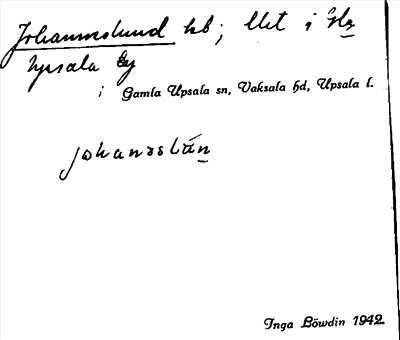 Johanneslund hb; Ulet i Gla
Upsala by
i Gamla Upsala sn, Vaksala hd, Upsala l.
johanəslún
Inga Löwdin 1942.